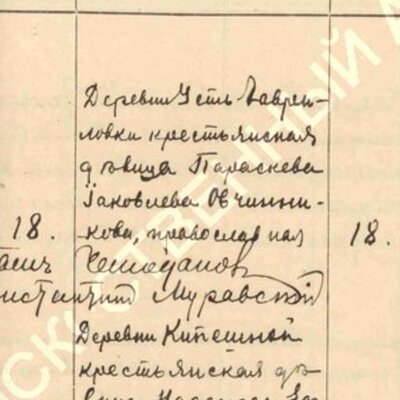 Деревни Усть Гаври-
ловки крестьянская
дѣвица Параскева
Іаковлева Овчинни-
18. кова, православная 18.
Чемоданов
Константин Муравский
Деревни Кипешной
крестьянская дѣ-